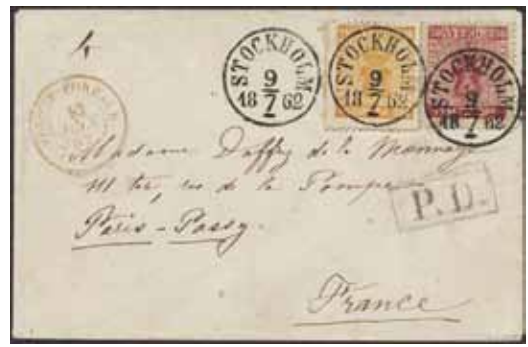 STOCKHOLM
9
7
18 62
STOCKHOLM
9
7
18 62
SVERIGE
STOCKHOLM
9
7
18 62
Madame Daffry de la Monnaye
111 ter, rue de la Pompe
P.D.
Paris - Passy.
France